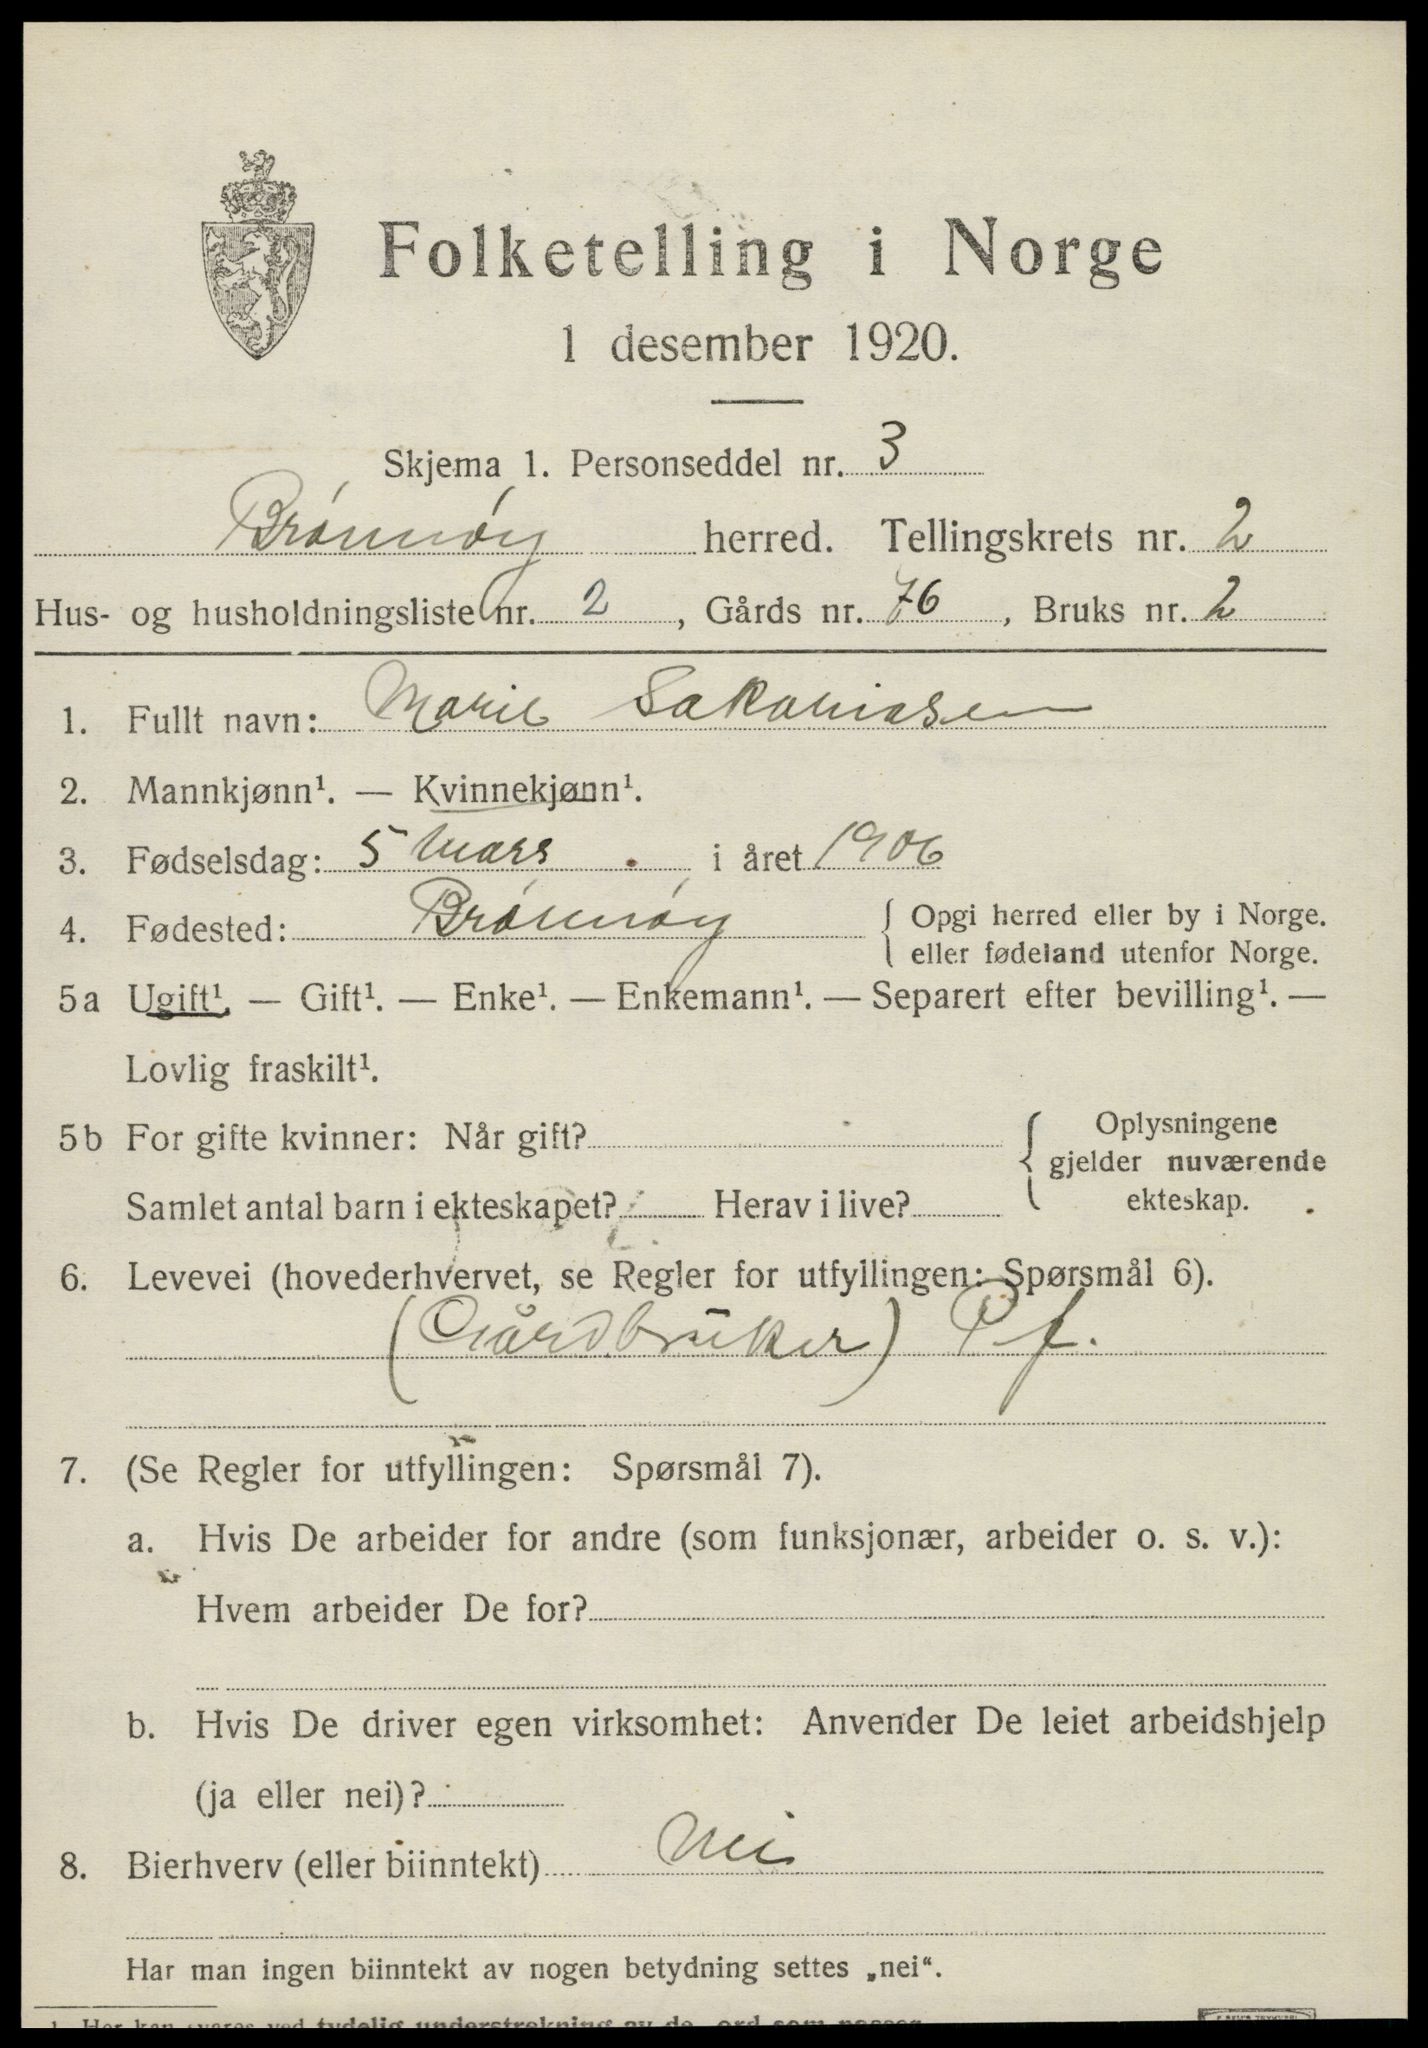 Folketelling i Norge
1 desember 1920.
Skjema 1. Personseddel nr. 3
Brónnóy herred. Tellingskrets nr. 2
Hus- og husholdningsliste nr. 2, Gårds nr. 76, Bruks nr. 2
1. Fullt navn: Marie Sakariasen
2. Mannkjønn¹. — Kvinnekjønn¹.
3. Fødselsdag: 5 Mars i året 1906
4. Fødested: Brónnóy { Opgi herred eller by i Norge.
eller fødeland utenfor Norge.
5a Ugift¹. — Gift¹. — Enke¹. — Enkemann¹. — Separert efter bevilling¹. —
Lovlig fraskilt¹.
5b For gifte kvinner: Når gift? { Oplysningene
gjelder nuværende
ekteskap.
Samlet antal barn i ekteskapet? Herav i live?
6. Levevei (hovederhvervet, se Regler for utfyllingen: Spørsmål 6).
(Gårdbruker) P f.
7. (Se Regler for utfyllingen: Spørsmål 7).
a. Hvis De arbeider for andre (som funksjonær, arbeider o. s. v.):
Hvem arbeider De for?
b. Hvis De driver egen virksomhet: Anvender De leiet arbeidshjelp
(ja eller nei)?
8. Bierhverv (eller biinntekt) Nei
Har man ingen biinntekt av nogen betydning settes „nei“.
1. Her kan svares ved tydelig understrekning av de ord som passer.